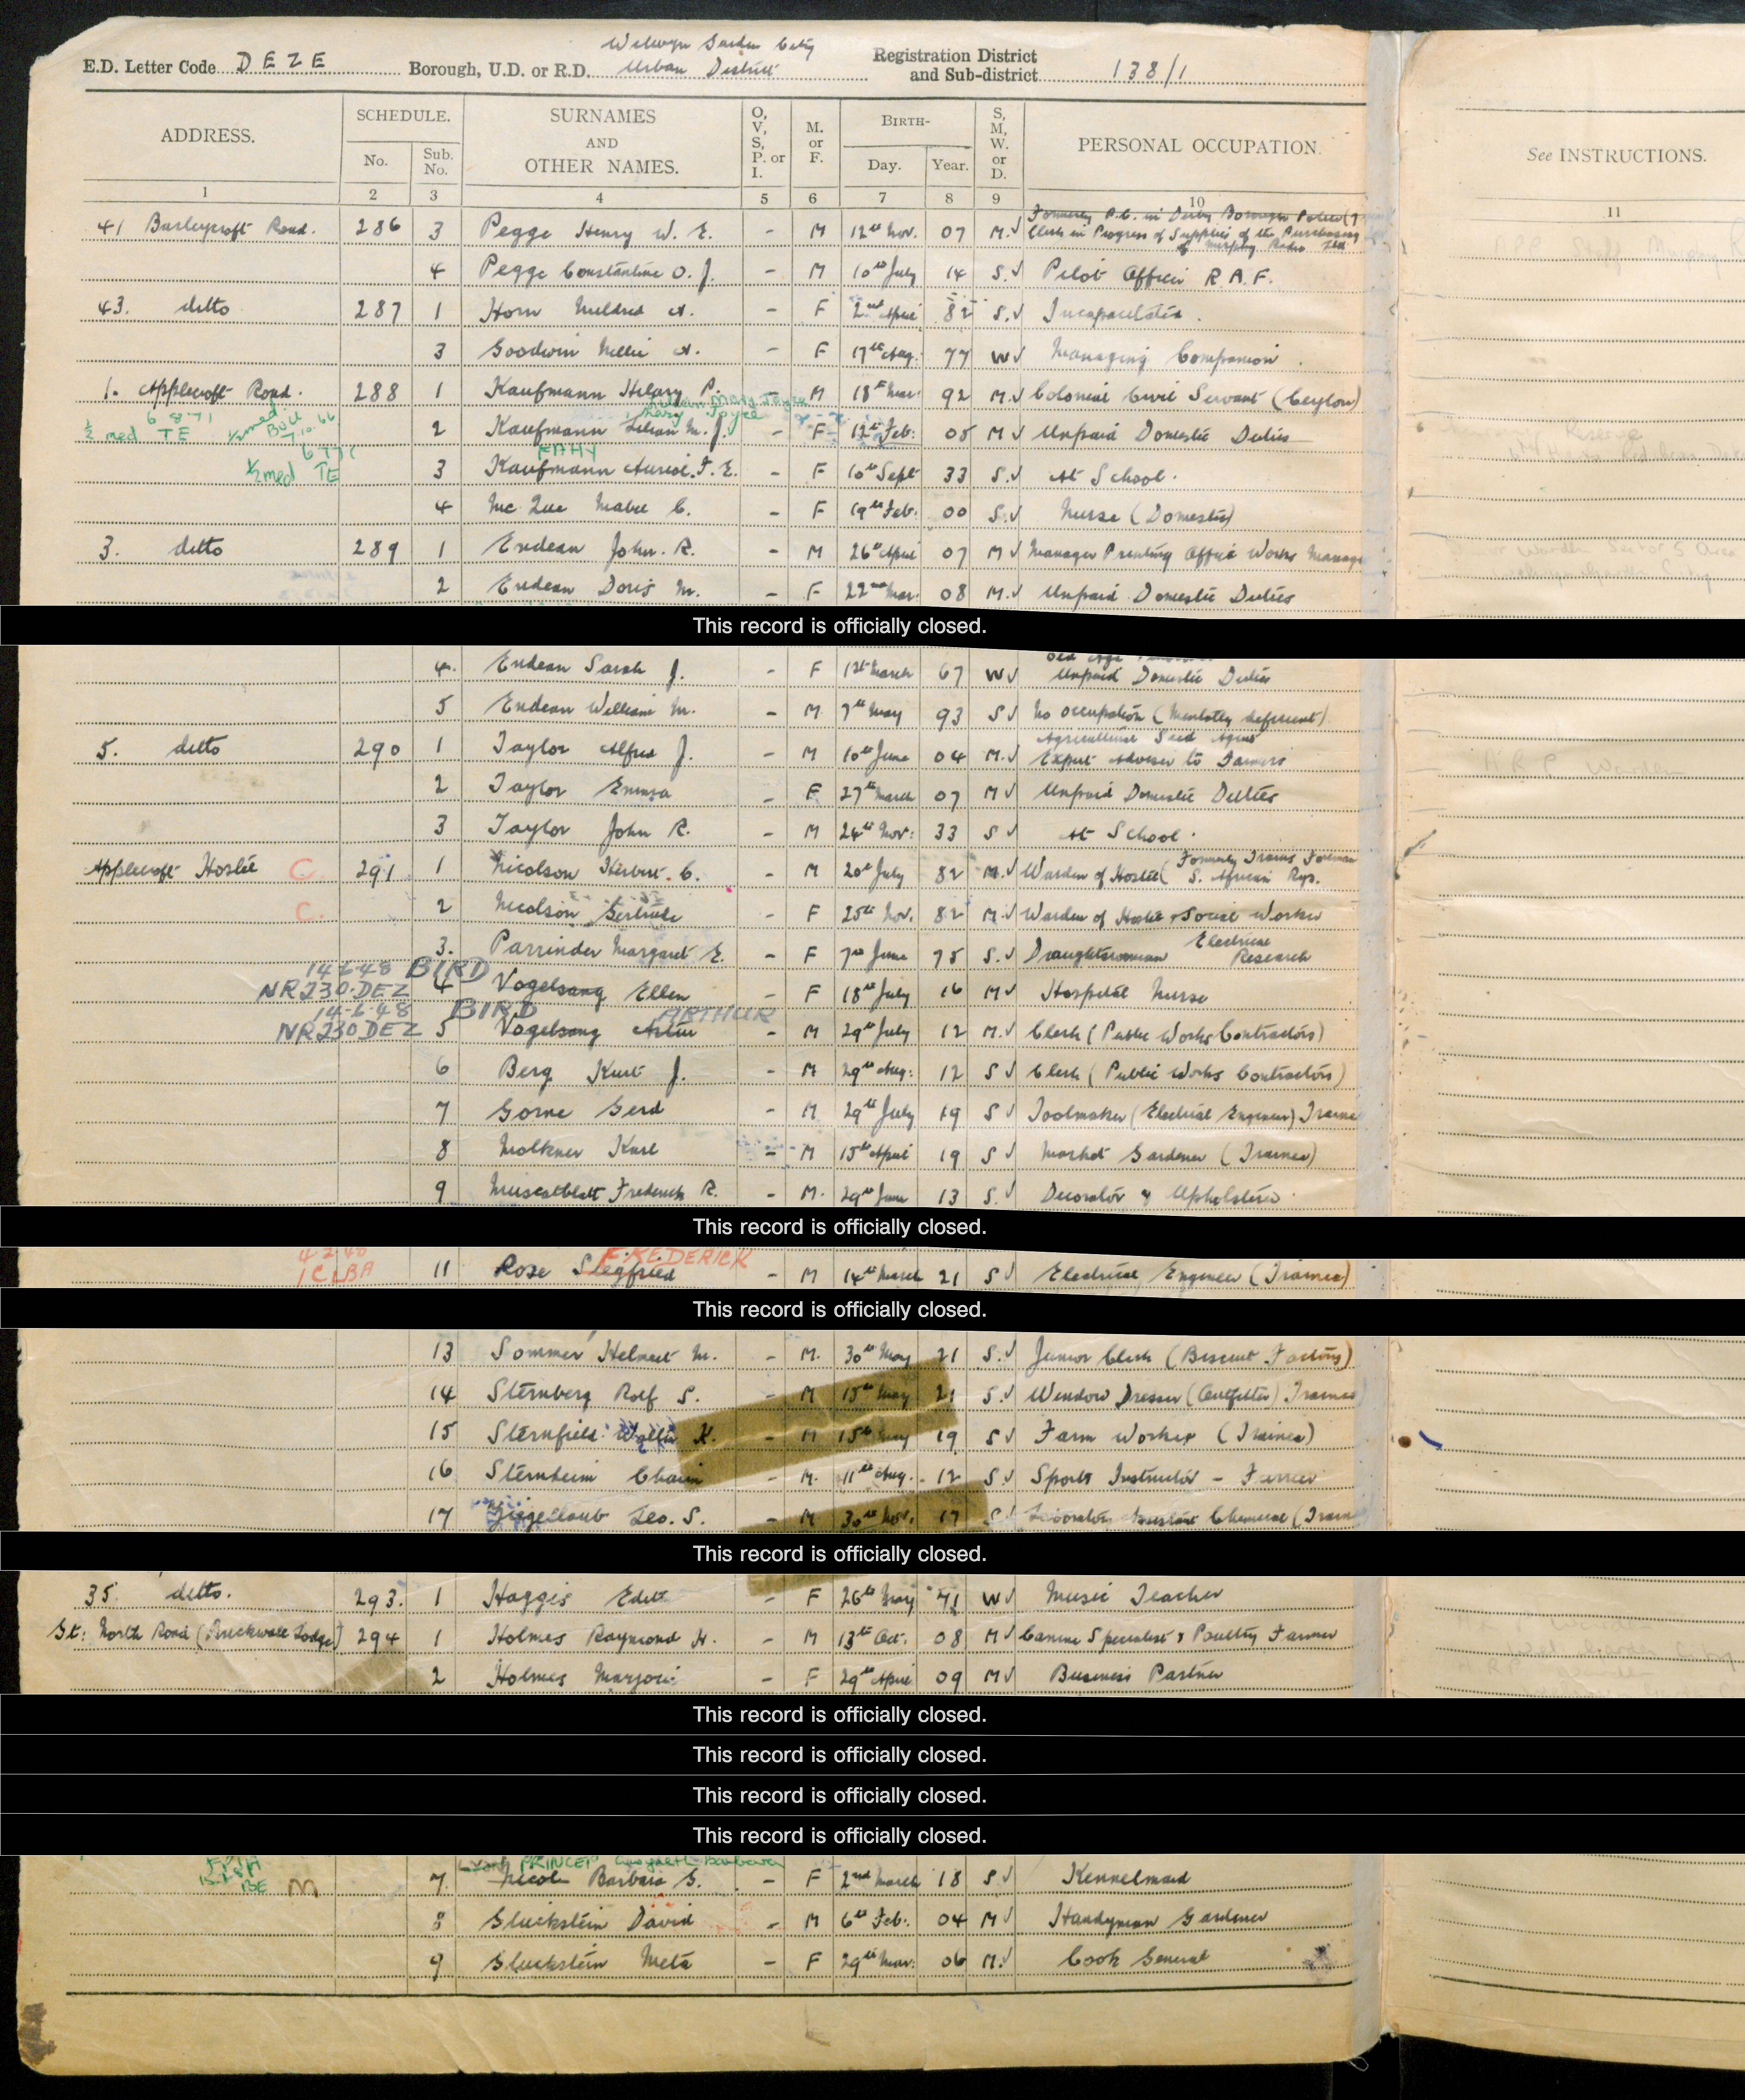 Welwyn Garden City
E.D. Letter Code DEZE Borough, U.D. or R.D. Urban District Registration District and Sub-district 138/1
ADDRESS. SCHEDULE. No. Sub. No. SURNAMES AND OTHER NAMES. O, V, S, P. or I. M. or F. BIRTH- Day. Year. S, M, W. or D. PERSONAL OCCUPATION. See INSTRUCTIONS.
1 2 3 4 5 6 7 8 9 10 11
Formerly P.C. in Derby Borough Police
41 Barleycroft Road. 286 3 Pegge Henry W. E. - M 12th Nov. 07 M. Clerk in Progress of Supplies of the Purchasing
of Murphy Radio Ltd
4 Pegge Constantine O. J. - M 10th July 14 S. Pilot Officer R.A.F.
43. ditto 287 1 Horn Mildred A. - F 2nd April 82 S. Incapacitated.
3 Goodwin Nellie A. - F 17th Aug. 77 W Managing Companion.
1. Applecroft Road. 288 1 Kaufmann Hilary P. - M 18th Mar: 92 M. Colonial Civil Servant (Ceylon)
2 Kaufmann Lilian M. J. - F 12th Feb: 05 M Unpaid Domestic Duties
½ med TE
½ med TE
3 Kaufmann F. E. - F 10th Sept 33 S. At School.
4 Mc Mabel C. - F 19th Feb. 00 S. Nurse (Domestic)
3. ditto 289 1 Endean John. R. - M 26th April 07 M Manager Printing Office Works
2 Endean Doris M. - F 22nd Mar: 08 M. Unpaid Domestic Duties
This record is officially closed.
4. Endean Sarah J. - F March 67 W Unpaid Domestic Duties
5 Endean William M. - M. 7th May 93 S No occupation (Mentally deficient).
Agricultural Seed Agent
5. ditto 290 1 Taylor Alfred J. - M 10th June 04 M. Expert Adviser to Farmers
2 Taylor Emma - F 27th March 07 M Unpaid Domestic Duties
3 Taylor John R. - M 24th Nov: 33 S At School.
A R P Warden
Applecroft Hostel C. 291 1 Nicolson Herbert. C. - M 20th July 82 M. Warden of Hostel (Formerly Trains Foreman S. African Rys.
C. 2 Nicolson Gertrude - F 25th Nov. 82 M. Warden of Hostel & Social Worker
3. Parrinder Margaret E. - F 7th June 95 S. Draughtswoman Electrical Research
14·6·48 BIRD
NR230·DEZ 4 Vogelsang Ellen - F 18th July 16 M Hospital Nurse
14·6·48 BIRD ARTHUR
NR230 DEZ 5 Vogelsang Artur - M 29th July 12 M. Clerk (Public Works Contractors)
6 Berg Kurt J. - M 29th Aug: 12 S Clerk (Public Works Contractors)
7 Gorne Gerd - M. 29th July 19 S Toolmaker (Electrical Engineer) Trainee
8 Molkner Karl - M 15th April 19 S Market Gardener (Trainee)
9 Muscatblatt Frederick R. - M. 29th June 13 S. Decorator & Upholsterer.
This record is officially closed.
FREDERICK
11 Rose Siegfried - M 14th March 21 S Electrical Engineer (Trainee)
This record is officially closed.
13 Sommer Helmut M. - M. 30th May 21 S. Junior Clerk (Biscuit Factory)
14 Sternberg Rolf S. - M 15th May 21 S. Window Dresser (Outfitter) Trainee
15 Sternfield Walter K. - M 15th May 19 S Farm Worker (Trainee)
16 Sternheim Chaim - M. 11th Aug. 12 S. Sports Instructor - Farrier
17 Ziegellaub Leo. S. - M 30th Nov. 17 S. Laboratory Assistant Chemical (Train
This record is officially closed.
35 ditto. 293. 1 Haggis Edith F 26th May 71 W Music Teacher
Gt: North Road (Brickwall Lodge) 294 1 Holmes Raymond H. - M 13th Oct. 08 M Canine Specialist & Poultry Farmer
2 Holmes Marjorie - F 29th April 09 M Business Partner
This record is officially closed.
This record is officially closed.
This record is officially closed.
This record is officially closed.
PRINCEP
M 7. Nicol Barbara G. - F 2nd March 18 S Kennelmaid
8 Gluckstein David - M 6th Feb: 04 M Handyman Gardener
9 Gluckstein Meta - F 29th Mar: 06 M. Cook General